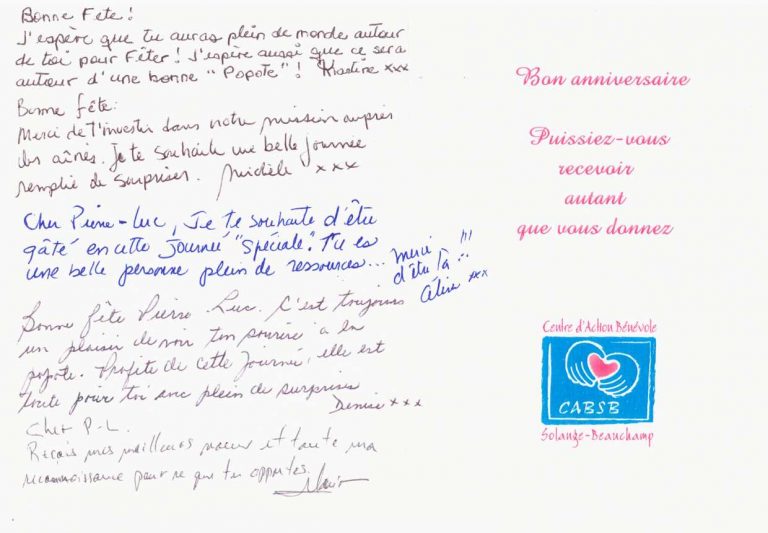 Bonne Fête!
J'espère que tu auras plein de monde autour
de toi pour Fêter! J'espère aussi que ce sera
autour d'une bonne "Popote"! xxx
Bonne fête.
Merci de t'investir dans notre mission auprès
des aînés. Je te souhaite une belle journée
remplie de surprises. Michèle xxx
Cher Pierre-Luc, Je te souhaite d'être
gâté en cette Journée "Spéciale". Tu es
une belle personne plein de ressources...
merci !!!
d'être là !!
xxx
Bonne fête Pierre-Luc. C'est toujours
un plaisir de voir ton sourire à la
popote. Profite de cette journée, elle est
toute pour toi avec plein de surprises
Denise xxx
Cher P.-L.
Reçois mes meilleurs voeux et toute ma
reconnaissance pour ce que tu apportes.
Bon anniversaire
Puissiez-vous
recevoir
autant
que vous donnez
Centre d'Action Bénévole
CABSB
Solange-Beauchamp